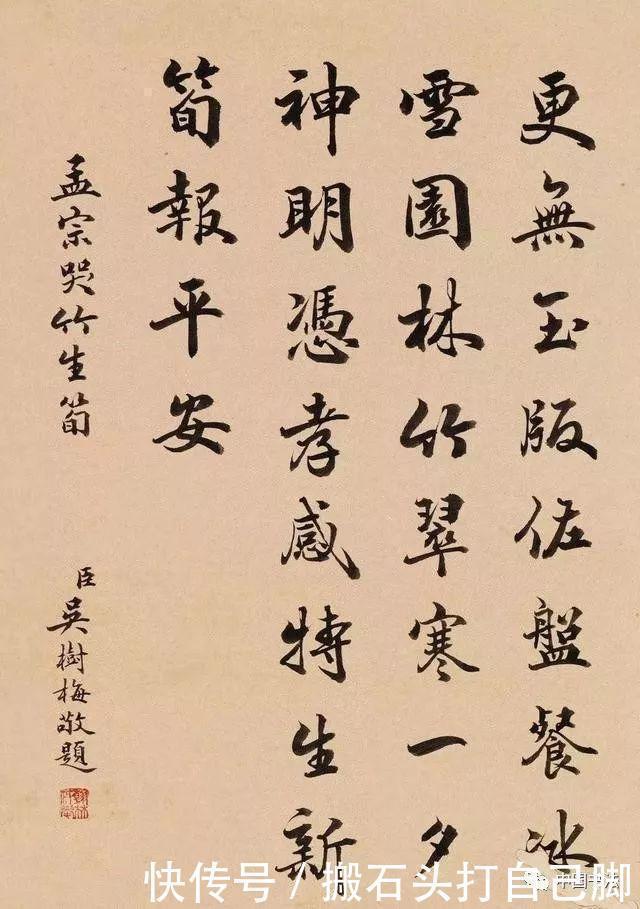 更無玉版佐盤餐冰
雪園林竹翠寒一夕
神明憑孝感特生新
筍報平安
孟宗哭竹生筍
臣吳樹梅敬題
快传号/搬石头打自己脚